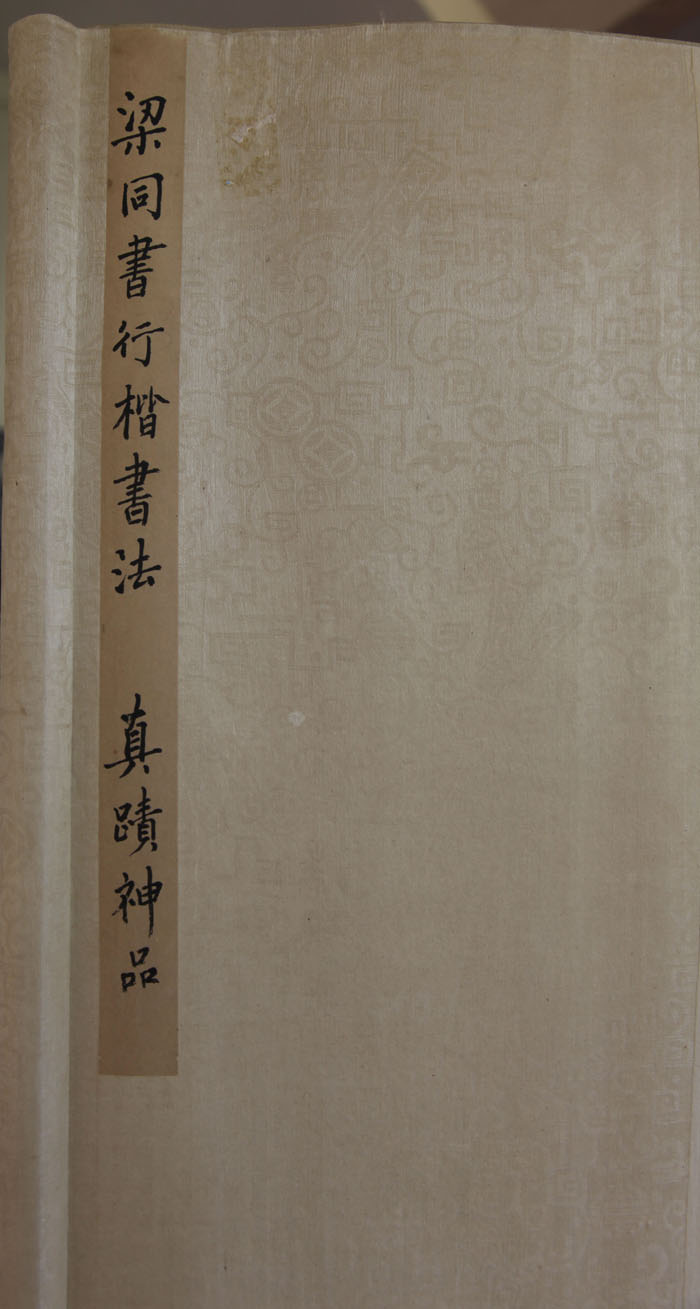 梁同書行楷書法　真蹟神品